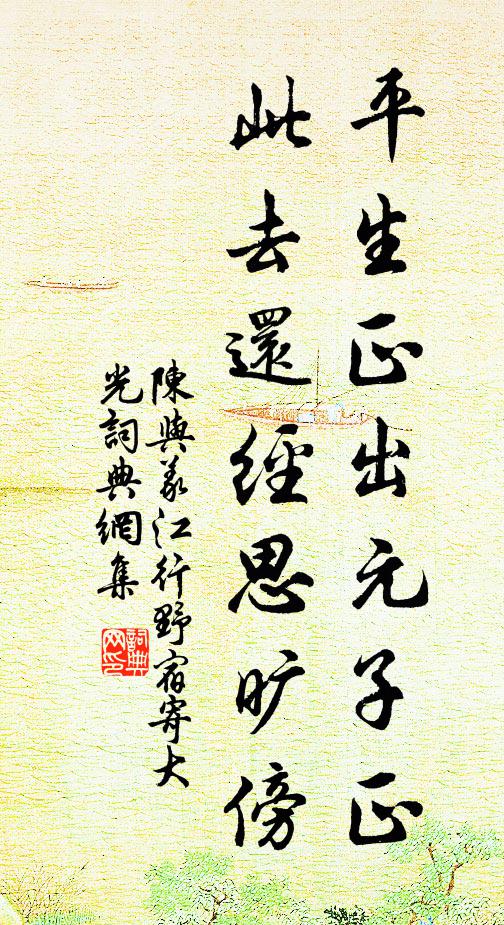 平生正出元子正
此去還經思旷傍
陳與義江行野宿寄大
光詞典網集
詞典
网印